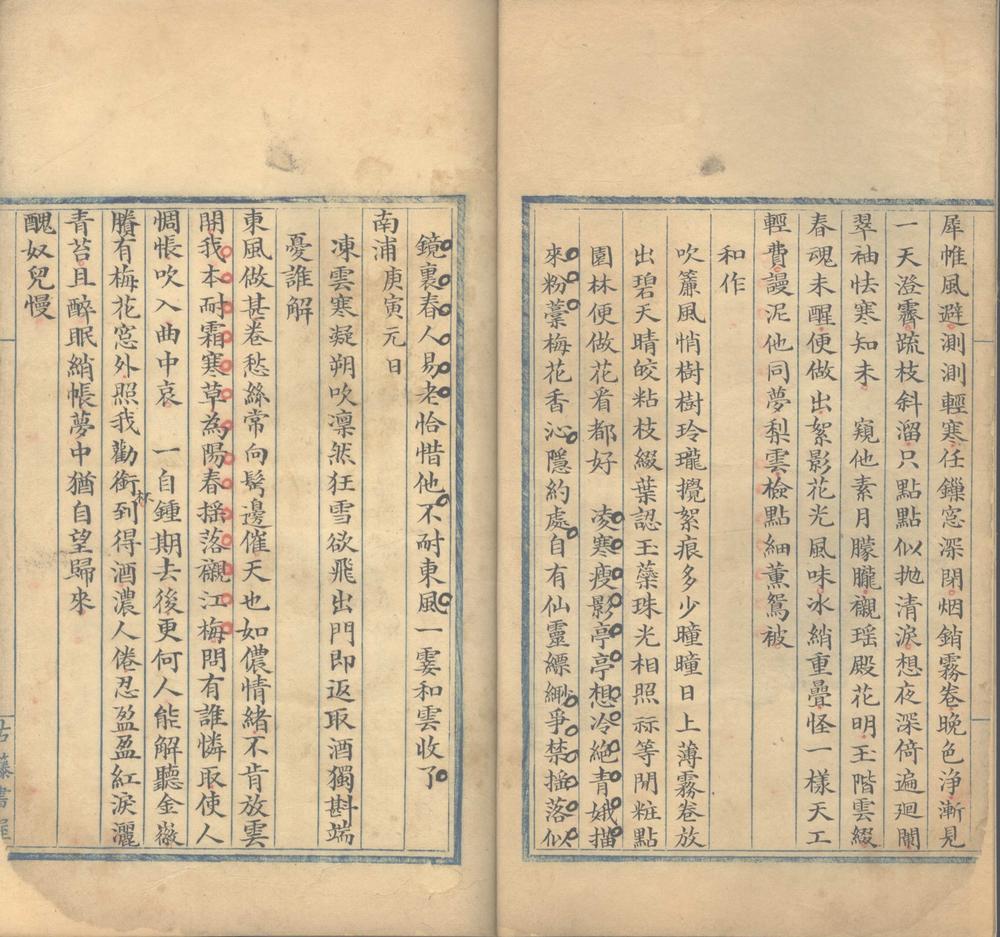 犀帷風避測測輕寒任鏁窓深閉烟銷霧卷晚色浄漸見
一天澄霽疏枝斜溜只點點似拋清淚想夜深倚遍迴闌
翠袖怯寒知未　窺他素月朦朧襯瑶殿花明玉階雲綴
春魂未醒便做出絮影花光風味冰綃重疊怪一樣天工
輕費謾泥他同夢梨雲檢點細薰鴛被
和作
吹簾風悄樹樹玲瓏攪絮痕多少曈曈日上薄霧卷放
出碧天晴皎粘枝綴葉認玉蘂珠光相照祘等閒粧點
園林便做花看都好　凌寒瘦影亭亭想冷絶青娥描
來粉藁梅花香沁隱約處自有仙靈縹緲爭禁摇落似
鏡裏春人易老恰惜他不耐東風一霎和雲收了
南浦庚寅元日
凍雲寒凝朔吹凛然狂雪欲飛出門即返取酒獨斟端
憂誰解
東風做甚卷愁絲常向髩邊催天也如儂情緒不肯放雲
開我本耐霜寒草為陽春揺落襯江梅問有誰憐取使人
惆悵吹入曲中哀　一自鍾期去後更何人能解聽金徽
賸有梅花窓外照我勸銜杯到得酒濃人倦忍盈盈紅淚灑
青苔且醉眠綃帳夢中猶自望歸來
醜奴兒慢
古藤書屋